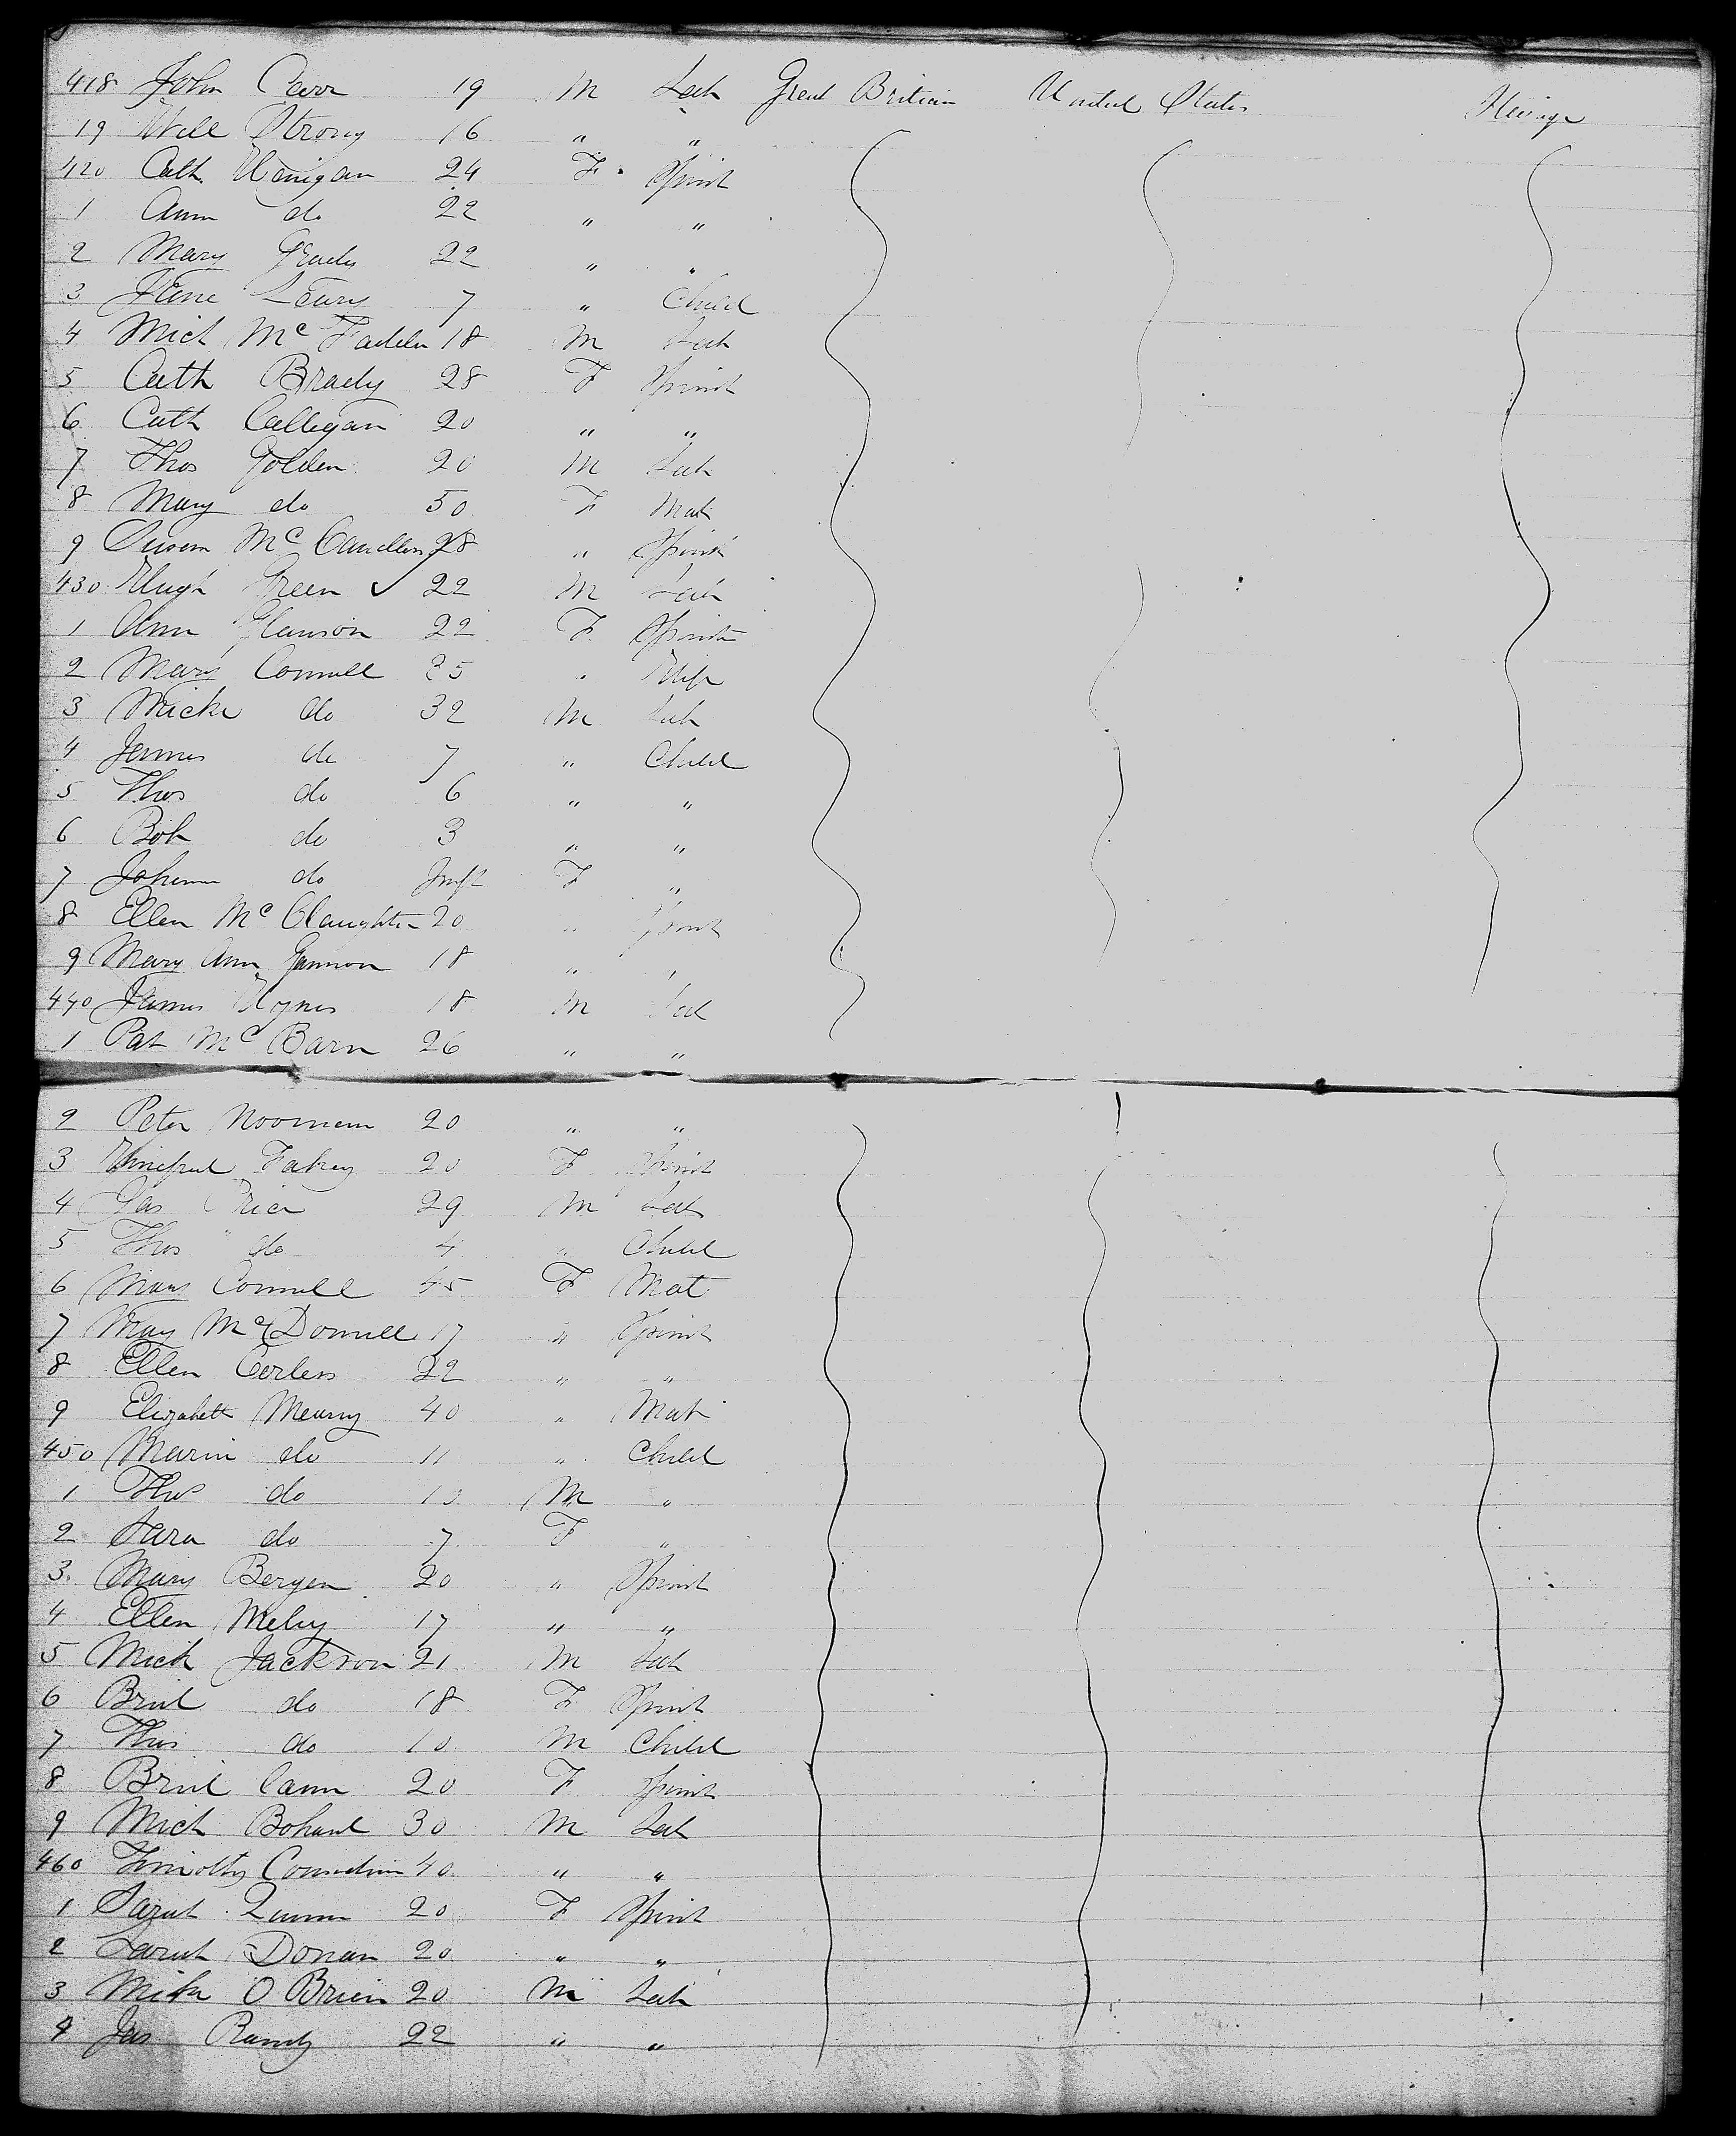 418 John Carr 19 M Lab Great Britian United States Steirage
19 Will Strong 16 " "
420 Cath 24 F Spinst
1 Ann do 22 " "
2 Mary Grady 22 " "
3 Jane Leary 7 " Child
4 Mich McFadden 18 M Lab
5 Cath Brady 28 F Spinst
6 Cath Calligan 20 " "
7 Thos Golden 20 M Lab
8 Mary do 50 F Mat
9 Susan Mc 28 " Spinst
430 Hugh Green 22 M Lab
1 Ann 22 F Spinst
2 Mary Connell Wife
3 Micke do 32 M Lab
4 James do 7 " Child
5 Thos do 6 " "
6 Bob do 3 " "
7 Johanna do Inft F "
8 Ellen McClaughten 20 " Spinst
9 Mary Ann Gannon 18 " "
440 James Hynes 18 M Lab
1 Pat McBarn 26 " "
2 Peter Noonan 20 " "
3 Winefred Fahey 20 F Spinst
4 Jas Price 29 M Lab
5 Thos do 4 " Child
6 Mary Connell 45 F Mat
7 May McDonnell 17 " Spinst
8 Ellen Corless 22 " "
9 Elizabeth 40 " Mat
450 Maria do 11 " Child
1 Thos do 10 M "
2 Sara do 7 F "
3 Mary Bergen 20 " Spinst
4 Ellen 17 " "
5 Mich Jackson 21 M Lab
6 Brid do 18 F Spinst
7 Thos do 10 M Child
8 Brid Cann 20 F Spinst
9 Mich 30 M Lab
460 Timothy Considin 40 " "
1 Sarah Quinn 20 F Spinst
2 Sarah Donan 20 " "
3 Mich O Brien 20 M Lab
4 Jas 22 " "